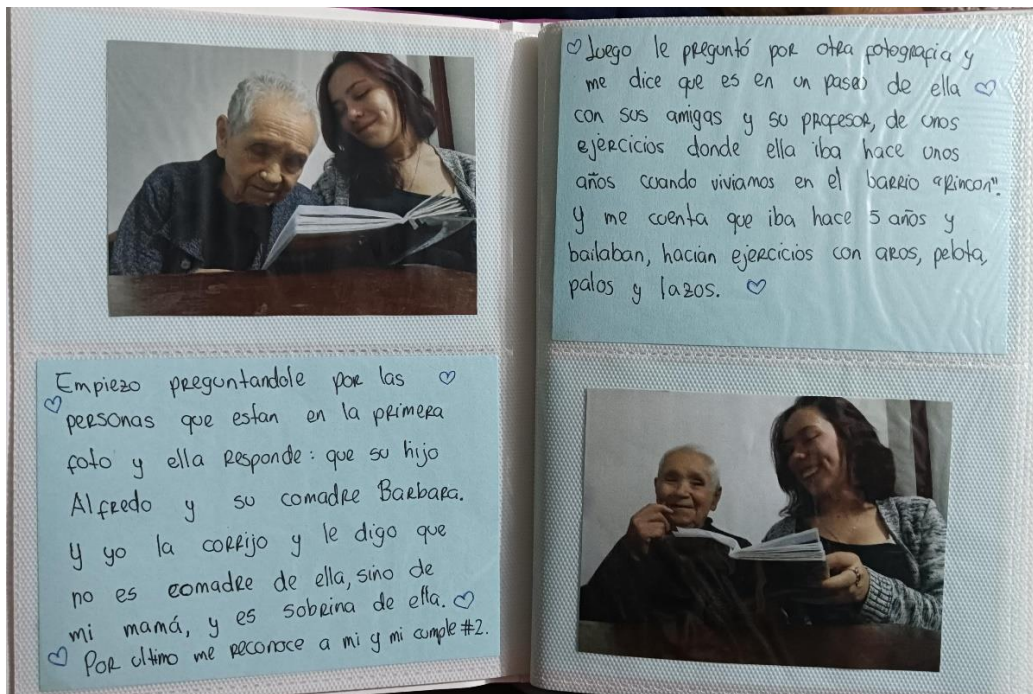 Empiezo preguntandole por las
personas que estan en la primera
foto y ella responde: que su hijo
Alfredo y su comadre Barbara.
y yo la corrijo y le digo que
no es comadre de ella, sino de
mi mamá, y es sobrina de ella.
Por ultimo me reconoce a mi y mi cumple #2.
Luego le preguntó por otra fotografia y
me dice que es en un paseo de ella
con sus amigas y su profesor, de unos
ejercicios donde ella iba hace unos
años cuando viviamos en el barrio "Rincon".
y me cuenta que iba hace 5 años y
bailaban, hacian ejercicios con aros, pelota,
palos y lazos.